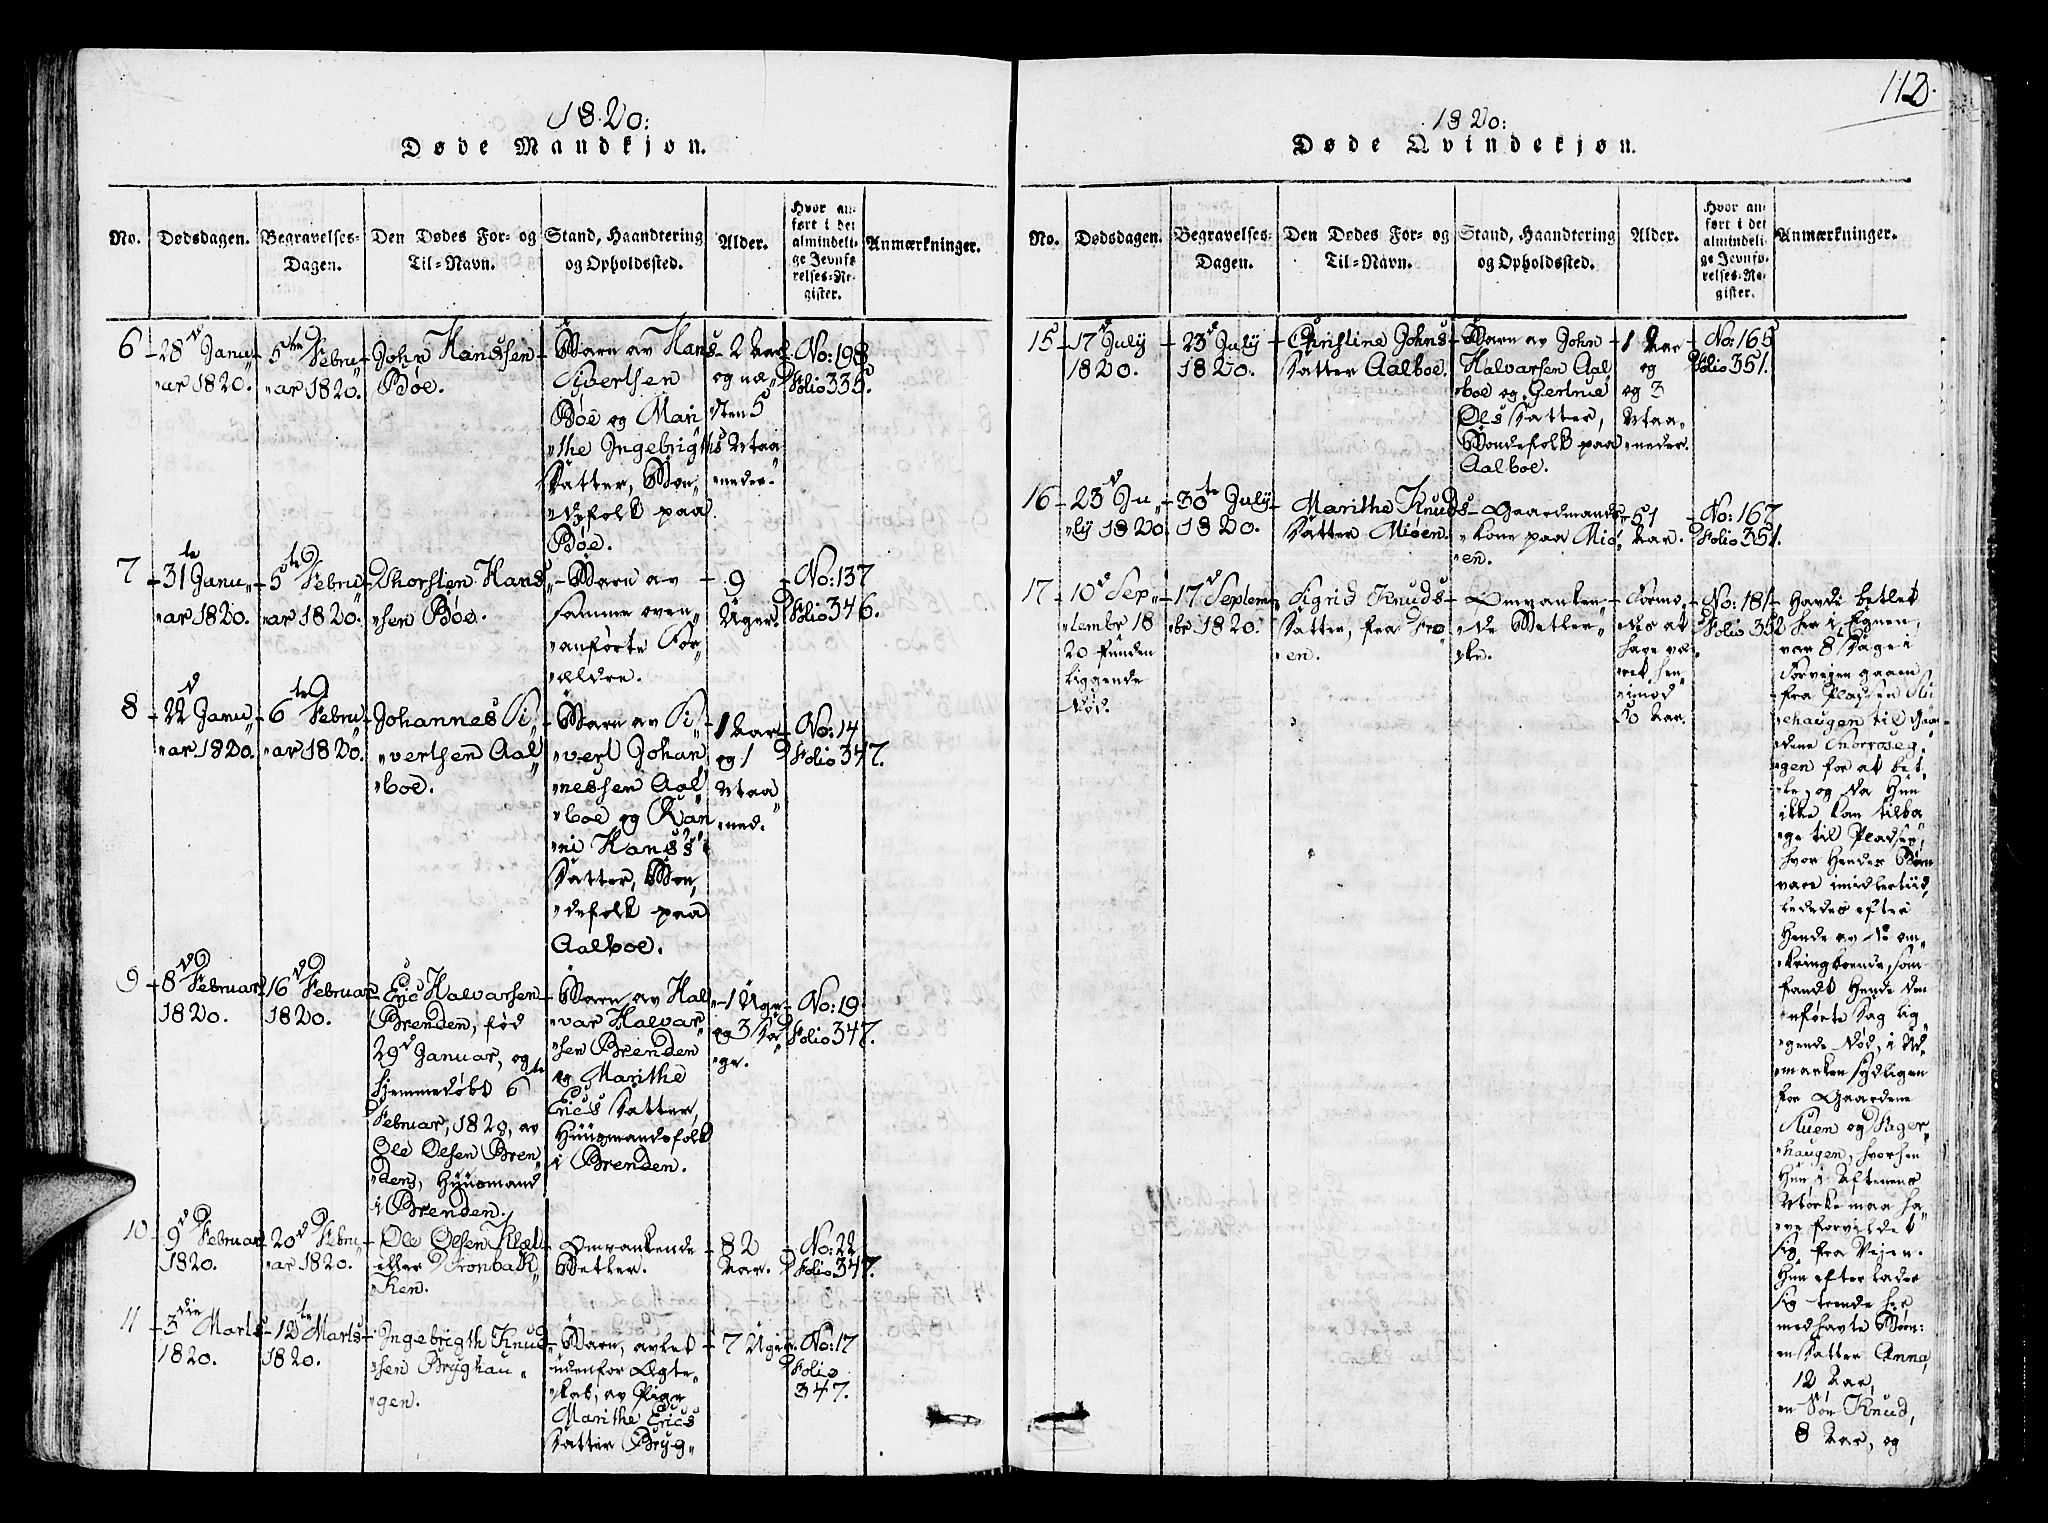 1820:
Døde Mandkjøn.
No.
Dødsdagen.
Begravelses-
Dagen.
Den Dødes For- og
Til-Navn.
Stand, Haandtering
og Opholdssted.
Alder.
Hvor an-
ført i det
almindeli-
ge Jevnfø-
relses-Re-
gister.
Anmærkninger.
6
28d Janu„
„ar 1820.
5te Febru„
„ar 1820.
John Hanssen
Bøe.
Barn av Hans
Sivertsen
Bøe og Mari„
„the Ingebrigts
Datter, Bøn„
„defolk paa
Bøe.
2 Aar
og næ„
sten 5
Maa„
„neder.
No: 198
Folio 335.
7
31te Janu„
„ar 1820.
5te Febru„
„ar 1820.
Thorsten Hans„
„sen Bøe.
Barn av
samme oven„
„anførte For„
„ældre.
9
Uger.
No: 137
Folio 346.
8
22d Janu„
„ar 1820.
6te Febru„
„ar 1820.
Johannes Si„
„vertsen Aal„
„boe.
Barn av Si„
„vert Johan„
„nessen Aal„
„boe og Ran„
„ni Hans's
Datter, Bøn„
„defolk paa
Aalboe.
1 Aar
og 1
Maa„
„ned.
No: 14
Folio 347.
9
8d Februar
1820.
16d Februar
1820.
Eric Halvarsen
Brenden, fød
29d Januar, og
hjemmedøbt 6te
Februar, 1820, av
Ole Olsen Bren„
„den, Huusmand
i Brenden.
Barn av Hal„
„var Halvar„
„sen Brenden
og Marithe
Erics Datter,
Huusmandsfolk
i Brenden.
1 Uge
og 3 Da„
„ge.
No: 19
Folio 347.
10
9d Februar
1820.
20d Febru„
„ar 1820.
Ole Olsen
eller
„ken.
Omvankende
Betler.
82
Aar.
No: 22
Folio 347.
11
3die Marts
1820.
12te Marts
1820.
Ingebrigth Knud„
„sen Bryghau„
„gen.
Barn, avlet
udenfor Ægte„
„skab, av Pige
Marithe Erics
Datter Bryg„
7 Uger.
No: 17
Folio
347.
112.
1820:
Døde Qvindekjøn.
No.
Dødsdagen.
Begravelses-
Dagen.
Den Dødes For- og
Til-Navn.
Stand, Haandtering
og Opholdssted.
Alder.
Hvor an-
ført i det
almindeli-
ge Jevnfø-
relses-Re-
gister.
Anmærkninger.
15
17d July
1820.
23d July
1820.
Christine Johns
Datter Aalboe.
Barn av John
Halvarsen Aal„
„boe og Gertrue
Ols Datter,
Bøndefolk paa
Aalboe.
1 Aar
og
og 3
Maa„
„neder.
No: 165
Folio 351.
16
23d Ju„
„ly 1820.
30te July
1820.
Marithe Knuds
Datter Miøen.
Gaardmands„
„kone paa Miø„
„en.
51
Aar.
No: 167
Folio 351.
17
10d Sep„
„tembr 18
20 funden
liggende
død.
17d Septem„
„br 1820.
Sigrid Knuds
Datter, fra Fro„
„en.
Omvanken„
„de Betler„
„ske.
Formo„
„des at
have væ„
„ret hen„
„imod
50 Aar.
No: 181
Folio 352
Havde betlet
her i Egnen,
var 8 Dage i
Forvejen gaaen
fra Pladsen
„haugen til Gaar„
„dene
„gen for at bet„
„le, og da Hun
ikke kom tilba„
„ge til Pladsen,
hvor Hendes Børn
vare imidlertiid,
lededes efter
Hende av de om„
„kringboende, som
fandt Hende den
anførte Dag lig„
„gende død, i Ud„
„marken sydligen
for Gaardene
„haugen, hvorhen
Hun i Aftenens
Mørke maa ha„
„ve forvildet
sig fra Vejen.
Hun efterlader
sig trende her
medhavte Børn:
en Datter Anna,
12 Aar,
en Søn Knud,
8 Aar, og